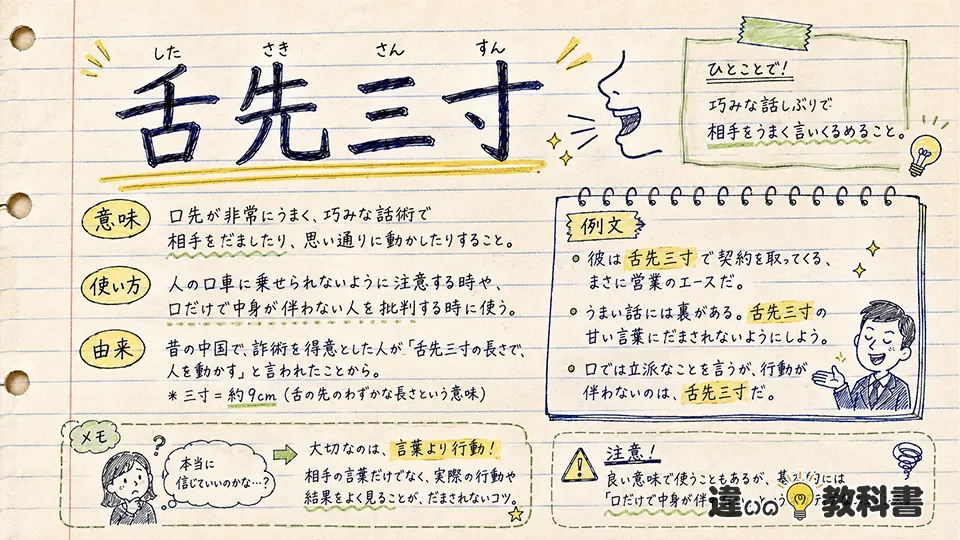 した さき さん すん
舌先三寸
ひとことで!
巧みな話しぶりで
相手をうまく言いくるめること。
意味
口先が非常にうまく、巧みな話術で
相手をだましたり、思い通りに動かしたりすること。
使い方
人の口車に乗せられないように注意する時や、
口だけで中身が伴わない人を批判する時に使う。
由来
昔の中国で、詐術を得意とした人が「舌先三寸の長さで、
人を動かす」と言われたことから。
*三寸=約9cm(舌の先のわずかな長さという意味)
例文
・彼は舌先三寸で契約を取ってくる、
まさに営業のエースだ。
・うまい話には裏がある。舌先三寸の
甘い言葉にだまされないようにしよう。
・口では立派なことを言うが、行動が
伴わないのは、舌先三寸だ。
メモ
?
本当に
信じていいのかな…?
大切なのは、言葉より行動!
相手の言葉だけでなく、実際の行動や
結果をよく見ることが、だまされないコツ。
注意!
良い意味で使うこともあるが、基本的には
「口だけで中身が伴
違いの教科書